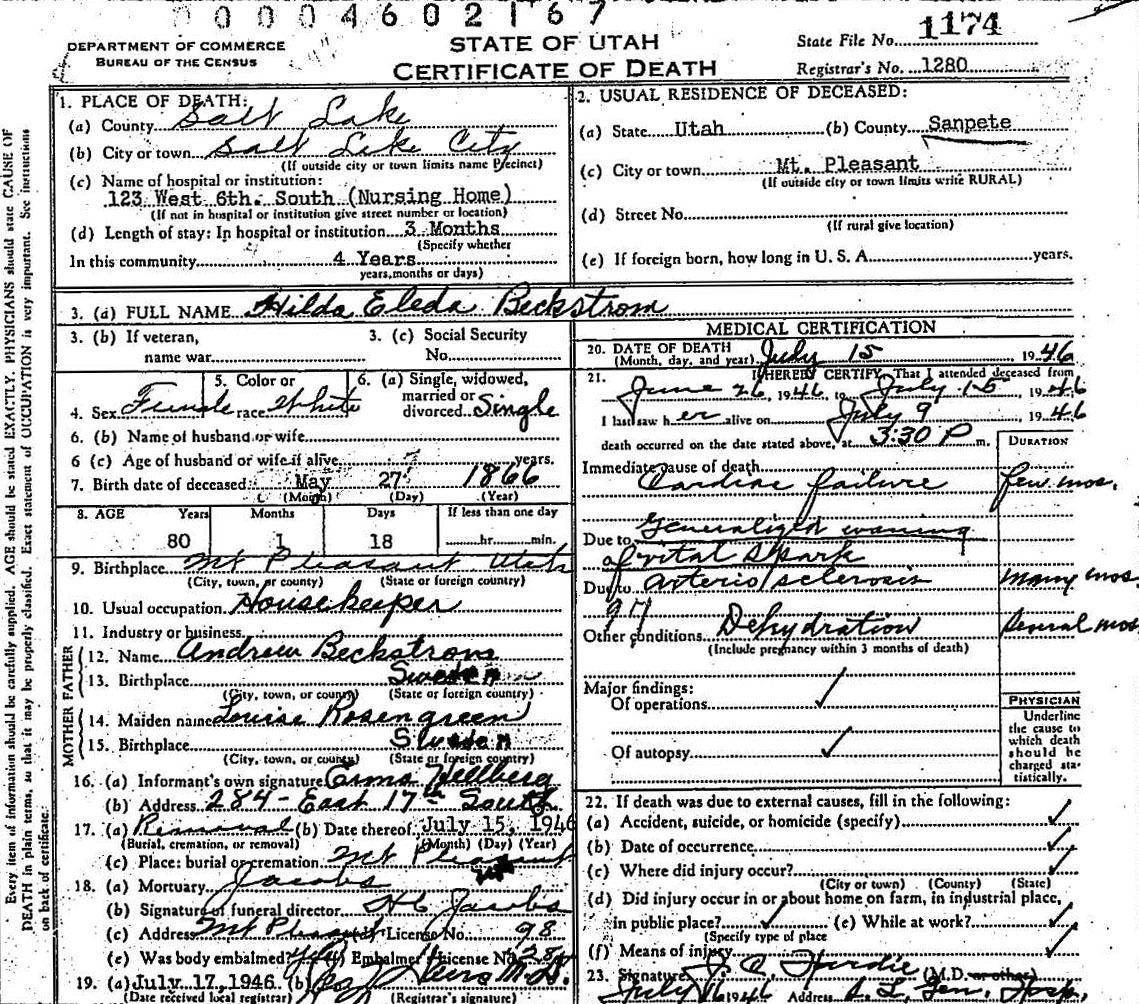 00004602167
DEPARTMENT OF COMMERCE
BUREAU OF THE CENSUS
STATE OF UTAH
CERTIFICATE OF DEATH
State File No. 1174
Registrar's No. 1280
Every item of information should be carefully supplied. AGE should be stated EXACTLY. PHYSICIANS should state CAUSE OF
DEATH in plain terms, so that it may be properly classified. Exact statement of OCCUPATION is very important. See instructions
on back of certificate.
1. PLACE OF DEATH:
(a) County Salt Lake
(b) City or town Salt Lake City
(If outside city or town limits name Precinct)
(c) Name of hospital or institution:
123 West 6th. South (Nursing Home)
(If not in hospital or institution give street number or location)
(d) Length of stay: In hospital or institution 3 Months
(Specify whether
In this community 4 Years
years, months or days)
2. USUAL RESIDENCE OF DECEASED:
(a) State Utah (b) County Sanpete
(c) City or town Mt. Pleasant
(If outside city or town limits write RURAL)
(d) Street No.
(If rural give location)
(e) If foreign born, how long in U. S. A. years.
3. (a) FULL NAME Hilda Eleda Beckstrom
3. (b) If veteran,
name war
3. (c) Social Security
No.
4. Sex Female
5. Color or
race White
6. (a) Single, widowed,
married or
divorced Single
6. (b) Name of husband or wife
6 (c) Age of husband or wife if alive years.
7. Birth date of deceased: May 27 1866
(Month) (Day) (Year)
8. AGE Years Months Days If less than one day
80 1 18 hr. min.
9. Birthplace Mt Pleasant Utah
(City, town, or county) (State or foreign country)
10. Usual occupation Housekeeper
11. Industry or business
FATHER
12. Name Andrew Beckstrom
13. Birthplace Sweden
(City, town, or county) (State or foreign country)
MOTHER
14. Maiden name Louise Rosengreen
15. Birthplace Sweden
(City, town, or county) (State or foreign country)
16. (a) Informant's own signature Erma Hellberg
(b) Address 284 - East 17th South
17. (a) Removal (b) Date thereof July 15, 1946
(Burial, cremation, or removal) (Month) (Day) (Year)
(c) Place: burial or cremation Mt Pleasant
18. (a) Mortuary Jacobs
(b) Signature of funeral director H C Jacobs
(c) Address Mt Pleasant License No. 98
(e) Was body embalmed Embalmer License No.
19. (a) July 17, 1946 (b) M.D.
(Date received local registrar) (Registrar's signature)
MEDICAL CERTIFICATION
20. DATE OF DEATH
(Month, day, and year) July 15 1946
21. I HEREBY CERTIFY, That I attended deceased from
June 26, 1946, to July 15, 1946
I last saw her alive on July 9 1946
death occurred on the date stated above, at 3:30 P m.
DURATION
Immediate cause of death
Cardiac failure few mos.
Due to Generalized waning
of vital spark
Due to arterio sclerosis many mos
97
Other conditions Dehydration several mos
(Include pregnancy within 3 months of death)
Major findings:
Of operations ✓
Of autopsy ✓
PHYSICIAN
Underline
the cause to
which death
should be
charged sta-
tistically.
22. If death was due to external causes, fill in the following:
(a) Accident, suicide, or homicide (specify) ✓
(b) Date of occurrence ✓
(c) Where did injury occur? ✓
(City or town) (County) (State)
(d) Did injury occur in or about home, on farm, in industrial place,
in public place? ✓ (e) While at work? ✓
(Specify type of place
(f) Means of injury ✓
23. Signature J. C. Hardie (M.D. or other)
July 16 1946 Address S. L. Gen. Hosp.